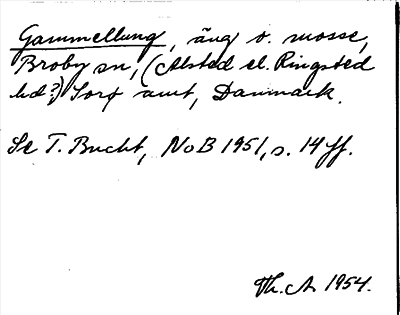 Gammellung, äng o. mosse,
Broby sn, (Alsted el. Ringsted
hd?) Sorø amt, Danmark.
Se T. Bucht, NoB 1951, s. 14 ff.
Th. A. 1954.